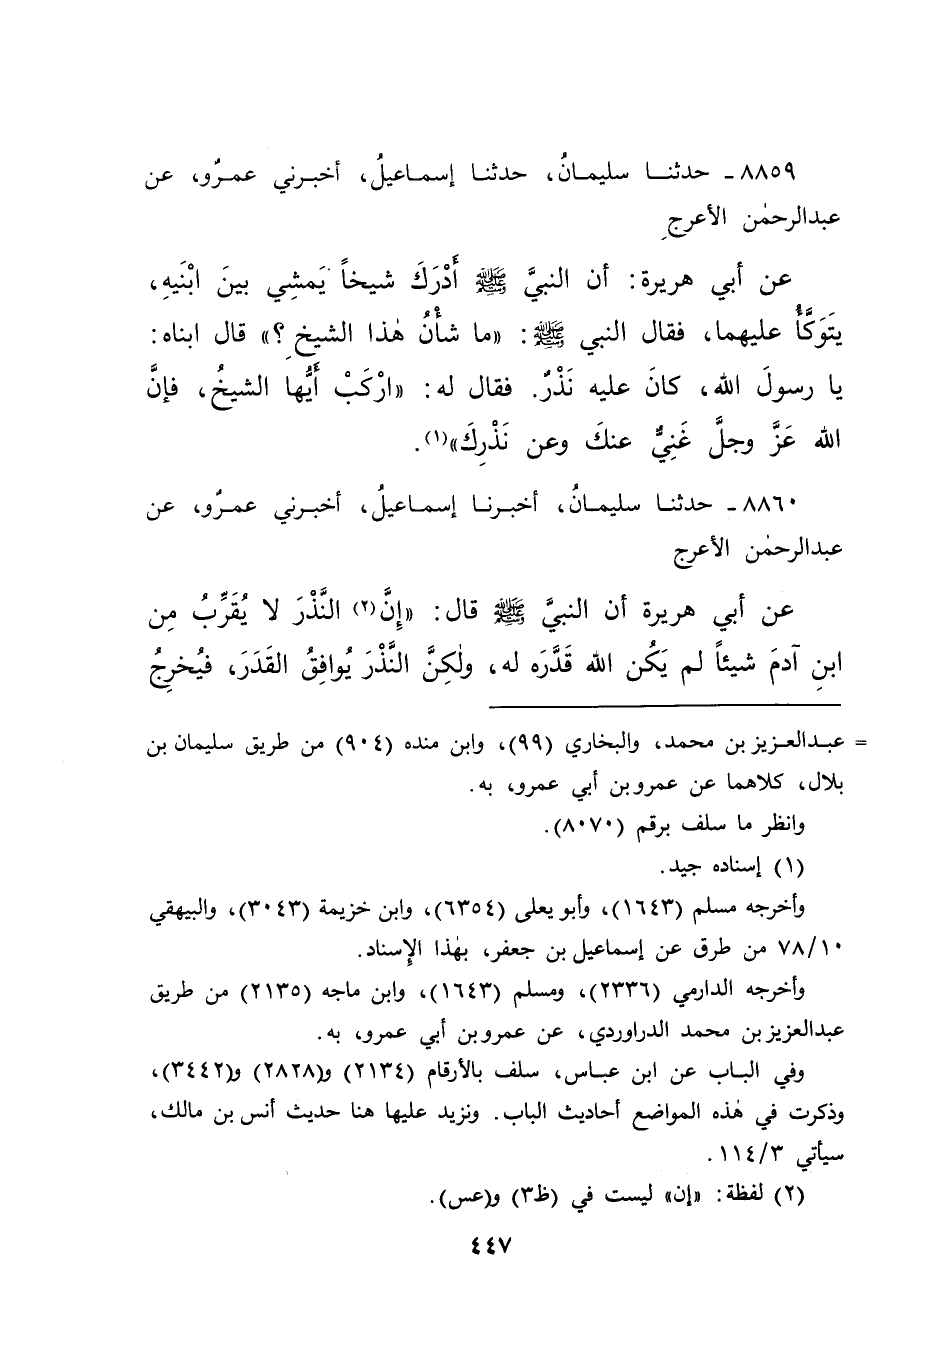 ٨٨٥٩ـ حدثنـــا سليمــانُ، حدثنـا إسمــاعيلُ، أخبــرني عمــرٌو، عن
عبدالرحمٰن الأعرجِ
عن أبي هريرة: أن النبيَّ ﷺ أَدْرَكَ شيخاً يَمشِي بينَ ابْنَيهِ،
يَتَوكَّأُ عليهما، فقال النبي ﷺ: «ما شأْنُ هٰذا الشيخِ؟» قال ابناه:
يا رسولَ الله، كانَ عليه نَذْرٌ. فقال له: «ارْكَبْ أَيُّها الشيخُ، فإنَّ
الله عَزَّ وجلَّ غَنِيٌّ عنكَ وعن نَذْرِكَ»(١).
٨٨٦٠ـ حدثنــا سليمــانُ، أخبــرنــا إسمــاعيلُ، أخبــرني عمــرٌو، عن
عبدالرحمٰن الأعرج
عن أبي هريرة أن النبيَّ ﷺ قال: «إِنَّ(٢) النَّذْرَ لا يُقَرِّبُ مِن
ابنِ آدمَ شيئاً لم يَكُن الله قَدَّرَه له، ولٰكِنَّ النَّذْرَ يُوافِقُ القَدَرَ، فيُخرِجُ
= عبـدالعـزيز بن محمد، والبخاري (٩٩)، وابن منده (٩٠٤) من طريق سليمان بن
بلال، كلاهما عن عمرو بن أبي عمرو، به.
وانظر ما سلف برقم (٨٠٧٠).
(١) إسناده جيد.
وأخرجه مسلم (١٦٤٣)، وأبو يعلى (٦٣٥٤)، وابن خزيمة (٣٠٤٣)، والبيهقي
٧٨/١٠ من طرق عن إسماعيل بن جعفر، بهٰذا الإِسناد.
وأخرجه الدارمي (٢٣٣٦)، ومسلم (١٦٤٣)، وابن ماجه (٢١٣٥) من طريق
عبدالعزيز بن محمد الدراوردي، عن عمرو بن أبي عمرو، به.
وفي البـاب عن ابن عبـاس، سلف بالأرقام (٢١٣٤) و(٢٨٢٨) و(٣٤٤٢)،
وذكرت في هٰذه المواضع أحاديث الباب. ونزيد عليها هنا حديث أنس بن مالك،
سيأتي ١١٤/٣.
(٢) لفظة: «إن» ليست في (ظ٣) و(عس).
٤٤٧